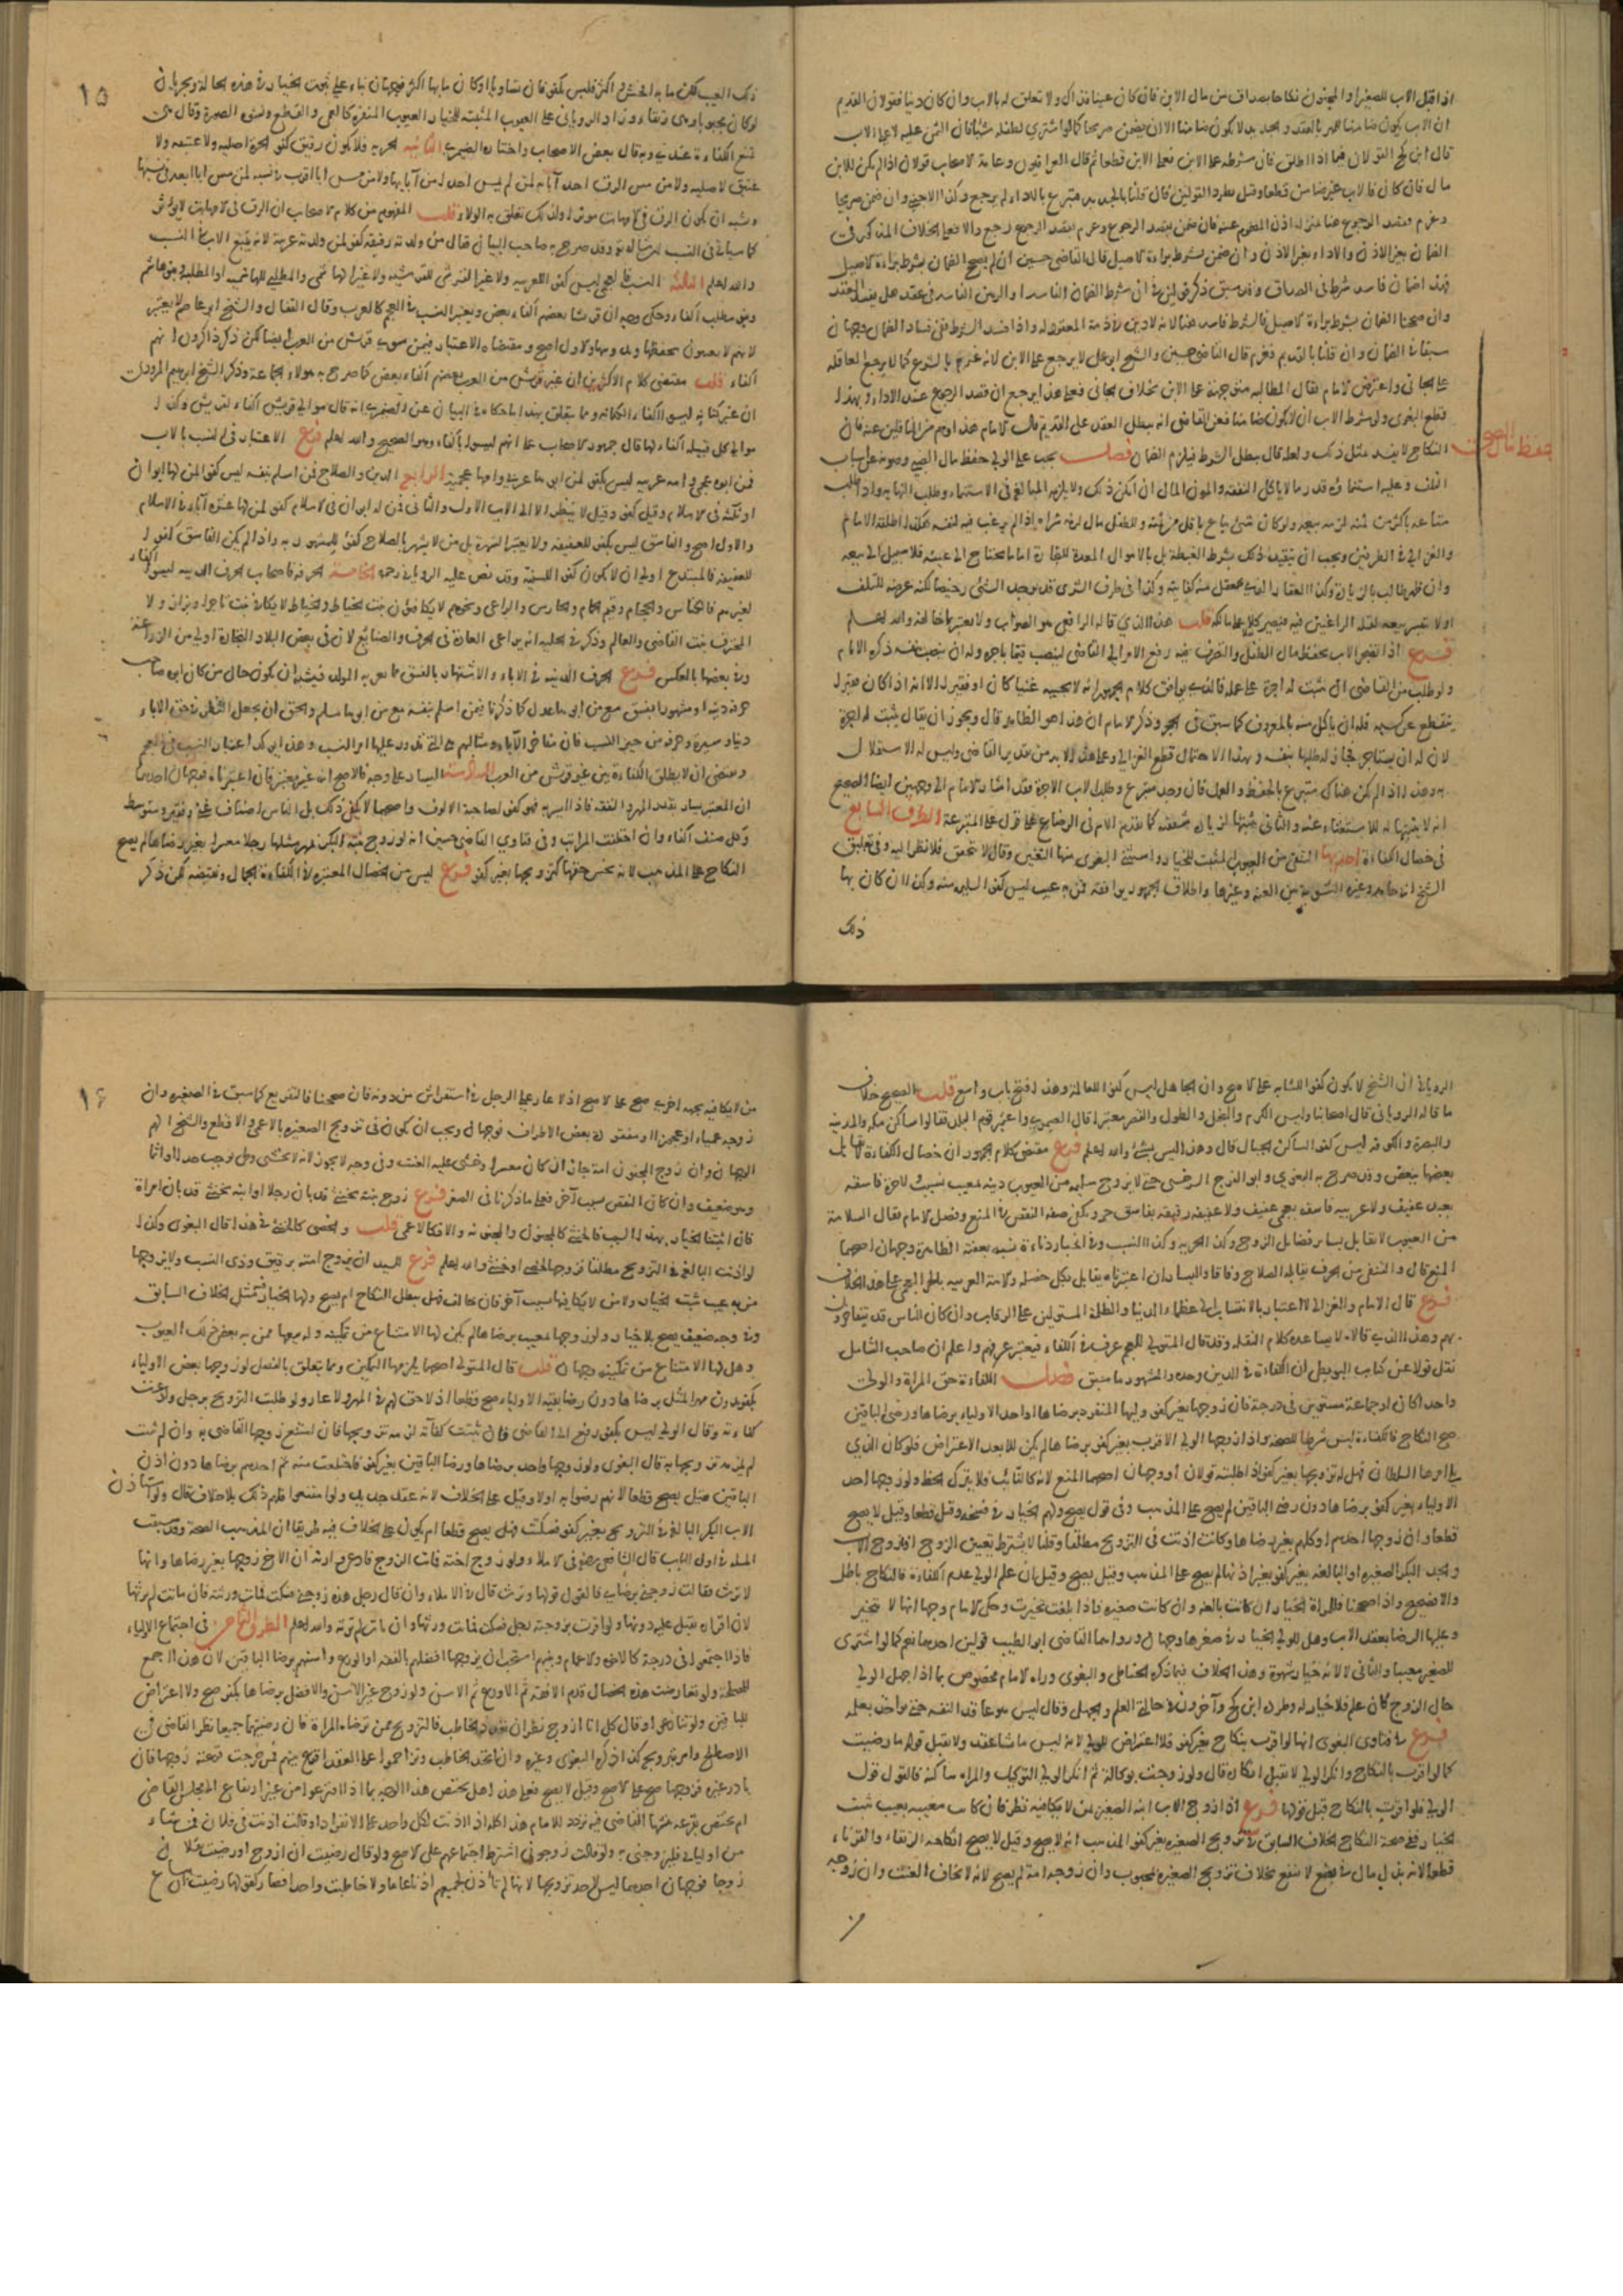 اذا قبل الاب للصغير او المجنون نكاحا بصداق من مال الابن فان كان عينا فذاك ولا تعلق له بالاب وان كان دينا فقولان القديم
ان الاب يكون ضامنا للمهر بالعقد والجديد لا يكون ضامنا الا ان يضمن صريحا كما لو اشترى لطفله شيئا فان الثمن عليه لا على الاب
قال ابن كج القولان فيما اذا اطلق فان شرطه على الابن فعلى الابن قطعا ثم قال العراقيون وعامة الاصحاب القولان اذا لم يكن للابن
مال فان كان فالاب غير ضامن قطعا وقيل بطرد القولين فان قلنا بالجديد فتبرع بالاداء لم يرجع وكذا الاجنبي وان ضمن صريحا
وغرم فقصد الرجوع هنا منزل اذن المضمون عنه فان ضمن بقصد الرجوع وغرم بقصد الرجوع رجع والا فعلى الخلاف المذكور في
الضمان بغير الاذن والاداء بغير الاذن وان ضمن بشرط براءة الاصيل قال القاضي حسين ان لم يصح الضمان بشرط براءة الاصيل
فهذا ضمان فاسد شرط في الصداق وقد سبق ذكر قولين في ان شرط الضمان الفاسد او الرهن الفاسد في عقد هل يفسد العقد
وان صححنا الضمان بشرط براءة الاصيل فالشرط فاسد هنا لانه لا دين في ذمة المعقود له واذا فسد الشرط ففي فساد الضمان وجهان
سبقا في الضمان وان قلنا بالقديم فغرم قال القاضي حسين والشيخ ابو علي لا يرجع على الابن لانه غرم بالشرع كما لا يرجع العاقلة
على الجاني واعترض الامام فقال المطالبة متوجهة على الابن بخلاف الجاني فعلى هذا يرجع ان قصد الرجوع عند الاداء وبهذا
قطع البغوي ولو شرط الاب ان لا يكون ضامنا فعن القاضي انه يبطل العقد على القديم قال الامام هذا وهم من الناقلين عنه فان
النكاح لا يفسد بمثل ذلك ولعله قال يبطل الشرط فيلزم الضمان فصل يجب على الولي حفظ مال الصبي وصونه عن اسباب
التلف وعليه استنماؤه قدر ما لا ياكل النفقة والمؤن المال ان امكن ذلك ولا يلزمه المبالغة في الاستنماء وطلب النهاية واذا طلب
متاعه باكثر من ثمنه لزمه بيعه ولو كان شيء يباع باقل من ثمنه وللطفل مال لزمه شراه اذا لم يرغب فيه لنفسه هكذا اطلقه الامام
والغزالي في الطرفين ويجب ان يتقيد ذلك بشرط الغبطة بل بالاموال المعدة للتجارة اما ما يحتاج الى عينه فلا سبيل الى بيعه
وان ظهر طالب بالزيادة وكذا العقار الذي يحصل منه كفايته وكذا في طرف الشرى قد يوجد الشيء رخيصا لكنه عرضة للتلف
او لا يتيسر بيعه لقلة الراغبين فيه فيصير كلا على مالكه قلت هذا الذي قاله الرافعي هو الصواب ولا يغتر بما خالفه والله اعلم
فرع اذا تضجر الاب بحفظ مال الطفل والتصرف فيه رفع الامر الى القاضي لينصب قيما باجرة وله ان ينصب بنفسه ذكره الامام
ولو طلب من القاضي ان يثبت له اجرة على عمله فالذي يوافق كلام الجمهور انه لا يجيبه غنيا كان او فقيرا الا انه اذا كان فقيرا
ينقطع عن كسبه فله ان ياكل منه بالمعروف كما سبق في الحجر وذكر الامام ان هذا هو الظاهر قال ويجوز ان يقال يثبت له اجرة
لان له ان يستاجر فجاز له طلبها لنفسه وبهذا الاحتمال قطع الغزالي وعلى هذا لا بد من تقدير القاضي وليس له الاستقلال
به وهذا اذا لم يكن هناك متبرع بالحفظ والعمل فان وجد متبرع وطلب الاب الاجرة فقد اشار الامام الى وجهين ايضا الصحيح
انه لا يثبتها له للاستغناء عنه والثاني يثبتها لزيادة شفقته كما تقدم الام في الرضاع على قول على المتبرعة الطرف السابع
في خصال الكفاءة احديها التنقي من العيوب المثبتة للخيار واستثنى البغوي منها التعنين وقال لا يتحقق فلا نظر اليه وفي تعليق
الشيخ ابي حامد وغيره التسوية بين العنة وغيرها واطلاق الجمهور يوافقه فمن به عيب ليس كفوا لسليمة منه وكذا ان كان بها
ذلك
حفظ مال الصبي
١٥
ذلك العيب لكن ما به افحش او اكثر فليس بكفو فان تساويا او كان ما بها اكثر فوجهان بناء على ثبوت الخيار في هذه الحالة ويجريان
لو كان مجبوبا وهي رتقاء وزاد الروياني على العيوب المثبتة للخيار العيوب المنفرة كالعمى والقطع وتشوه الصورة وقال هي
تمنع الكفاءة عندي وبه قال بعض الاصحاب واختاره الصيمري الثانيه الحرية فلا يكون رقيق كفو الحرة اصلية ولا عتيقة ولا
عتيق لاصلية ولا من مس الرق احد آبائه لمن لم يمس احدا من آبائها ولا من مس ابا اقرب في نسبه لمن مس ابا ابعد في نسبها
ويشبه ان يكون الرق في الامهات مؤثرا ولذلك تعلق به الولاء قلت المفهوم من كلام الاصحاب ان الرق في الامهات لا يؤثر
كما سياتي في النسب ان شا الله وقد صرح به صاحب البيان فقال من ولدته رقيقة كفو لمن ولدته عربية لانه يتبع الاب في النسب
والله اعلم الثالثه النسب فالعجمي ليس كفو العربية ولا غير القرشي للقرشية ولا غيرها لها شمي والمطلبي للهاشمية او المطلبية وبنو هاشم
وبنو مطلب اكفاء وحكي وجه ان قريشا بعضهم اكفاء بعض ويعتبر النسب في العجم كالعرب وقال القفال والشيخ ابو عاصم لا يعتبر
لانهم لا يعتنون بحفظها ويدونها والاول اصح ومقتضاه الاعتبار فيمن سوى قريش من العرب ايضا لكن ذكر ذاكرون انهم
اكفاء قلت مقتضى كلام الاكثرين ان غير قريش من العرب بعضهم اكفاء بعض كما صرح به هولاء الجماعة وذكر الشيخ ابرهيم المروذي
ان غير كنانة ليسوا اكفاء لكنانة ومما يتعلق بهذا ما حكاه في البيان عن الصيمري انه قال موالي قريش اكفاء لقريش وكذا
موالي كل قبيلة اكفاء لها قال جمهور الاصحاب على انهم ليسوا باكفاء وهو الصحيح والله اعلم فرع الاعتبار في النسب بالاب
فمن ابوه عجمي وامه عربية ليس بكفو لمن ابوها عربي وامها عجمية الرابع الدين والصلاح فمن اسلم بنفسه ليس كفوا لمن لها ابوان
او ثلثة في الاسلام وقيل كفو وقيل لا ينظر الا الى الاب الاول والثاني فمن له ابوان في الاسلام كفو لمن لها عشرة آباء في الاسلام
والاول اصح والفاسق ليس بكفو للعفيفة ولا يعتبر الشهرة بل من لا يشهر بالصلاح كفو للمشهورة به واذا لم يكن الفاسق كفوا
للعفيفة فالمبتدع اولى ان لا يكون كفو السنية وقد نص عليه الروياني رحمه الخامسة الحرفة فاصحاب الحرف الدنية ليسوا اكفاء
لغيرهم فالكناس والحجام وقيم الحمام والحارس والراعي ونحوهم لا يكافؤن بنت الخياط والخياط لا يكافئ بنت تاجر او بزاز ولا
المحترف بنت القاضي والعالم وذكر في الحلية انه يراعى العادة في الحرف والصنايع لان في بعض البلاد التجارة اولى من الزراعة
وفي بعضها بالعكس فرع الحرف الدنية في الاباء والاشتهار بالفسق مما يعير به الولد فيشبه ان يكون حال من كان ابوه صاحب
حرفة دنية او مشهورا بفسق مع من ابوها عدل كما ذكرنا فيمن اسلم بنفسه مع من ابوها مسلم والحق ان يجعل النظر في حق الاباء
دينا وسيرة وحرفة من حيز النسب فان مفاخر الآباء ومثالبهم هي التي يدور عليها امر النسب وهذا يؤكد اعتبار النسب في العجم
ويقتضي ان لا يطلق الكفاءة بين غير قريش من العرب السادسة اليسار على وجه فالاصح انه غير معتبر فان اعتبرناه فوجهان احدهما
ان المعتبر يسار بقدر المهر والنفقة فاذا ايسر به فهو كفو لصاحبة الالوف واصحهما لا يكفي ذلك بل الناس اصناف غني وفقير ومتوسط
وكل صنف اكفاء وان اختلفت المراتب وفي فتاوي القاضي حسين انه لو زوج بنته البكر بمهر مثلها رجلا معسرا بغير رضاها لم يصح
النكاح على المذهب لانه بخس حقها كتزويجها بغير كفو فرع ليس من الخصال المعتبرة في الكفاءة الجمال ونقيضه لكن ذكر
الروياني ان الشيخ لا يكون كفوا للشابة على الاصح وان الجاهل ليس كفوا للعالمة وهذا فتح باب واسع قلت الصحيح خلاف
ما قاله الروياني قال اصحابنا وليس الكرم والبخل والطول والقصر معتبرا قال الصيمري واعتبر قوم البلد فقالوا ساكن مكة والمدينة
والبصرة والكوفة ليس كفوا لساكن الجبال قال وهذا ليس بشيء والله اعلم فرع مقتضى كلام الجمهور ان خصال الكفاءة لا تقابل
بعضها ببعض وقد صرح به البغوي وابو الفرج السرخسي حتى لا يزوج سليمة من العيوب دنية بمعيب نسيب ولا حرة فاسقة
بعبد عفيف ولا عربية فاسقة بعجمي عفيف ولا عفيفة رقيقة بفاسق حر وتكفي صفة النقص في المنع وفصل الامام فقال السلامة
من العيوب لا تقابل بسائر فضائل الزوج وكذا الحرية وكذا النسب وفي انجبار دناءة نسبه بعفته الظاهرة وجهان اصحهما
المنع قال والتنقي من الحرف يقابله الصلاح وفاقا واليسار ان اعتبرناه يقابل بكل خصلة والامة العربية بالحر العجمي على هذا الخلاف
فرع قال الامام والغزالي لا اعتبار بالانتساب الى عظماء الدنيا والظلمة المستولين على الرقاب وان كان الناس قد يتفاخرون
بهم وهذا الذي قالاه لا يساعده كلام النقلة وقد قال المتولي للعجم عرف في الكفاء فيعتبر عرفهم واعلم ان صاحب الشامل
نقل قولا عن كتاب البويطي ان الكفاءة في الدين وحده والمشهور ما سبق فصل الكفاءة حق المراة والولي
واحدا كان او جماعة مستوين في درجة فان زوجها بغير كفو وليها المنفرد برضاها او احد الاولياء برضاها ورضى الباقين
صح النكاح فالكفاءة ليس شرطا للصحة واذا زوجها الولي الاقرب بغير كفو برضاها لم يكن للابعد الاعتراض فلو كان الذي
يلي امرها السلطان فهل له تزويجها بغير كفو اذا طلبته قولان او وجهان اصحهما المنع لانه كالنائب فلا يترك الحظ ولو زوجها احد
الاولياء بغير كفو برضاها دون رضى الباقين لم يصح على المذهب وفي قول يصح ولهم الخيار في فسخه وقيل قطعا وقيل لا يصح
قطعا وان زوجها احدهم او كلهم بغير رضاها وكانت اذنت في التزويج مطلقا وقلنا لا يشترط تعيين الزوج او زوج الاب
والجد البكر الصغيرة او البالغة بغير كفو بغير اذنها لم يصح على المذهب وقيل يصح وقيل ان علم الولي عدم الكفاءة فالنكاح باطل
والا فصحيح واذا صححنا فللمراة الخيار ان كانت بالغة وان كانت صغيرة فاذا بلغت تخيرت وحكى الامام وجها انها لا تتخير
وعليها الرضا بعقد الاب وهل للولي الخيار في صغرها وجهان ورواهما القاضي ابو الطيب قولين احدهما نعم كما لو اشترى
للصغير معيبا والثاني لا لانه خيار شهوة وهذا الخلاف فيما ذكره الحناطي والبغوي وراه الامام مخصوص بما اذا جهل الولي
حال الزوج فان علم فلا خيار له وطرده ابن كج وآخرون في حالتي العلم والجهل وقال ليس هو عاقدا لنفسه حتى يؤاخذ بعلمه
فرع في فتاوى البغوي انها لو اقرت بنكاح بغير كفو فلا اعتراض للولي لانه ليس ماشا عقد ولا يقبل قوله ما رضيت
كما لو اقرت بالنكاح وانكر الولي لا يقبل انكاره قال ولو زوجت بوكالة ثم انكر الولي التوكيل والمراة ساكتة فالقول قول
الولي فلو اقرت بالنكاح قبل قولها فرع اذا زوج الاب ابنه الصغير لمن لا يكافئه نظر فان كانت معيبة بعيب يثبت
الخيار ففي صحة النكاح الخلاف السابق في تزويج الصغيرة بغير كفو المذهب انه لا يصح وقيل لا يصح انكاحه الرتقاء والقرناء
قطعا لانه بذل مال في بضع لا ينفع بخلاف تزويج الصغيرة المجبوب وان زوجه امة لم يصح لانه لا يخاف العنت وان زوجه
من
١٦
من لا يكافيه بجهة اخرى صح على الاصح اذ لا عار على الرجل في استفراش من دونه فان صححنا فالتفريع كما سبق في الصغيرة وان
زوجه عمياء او عجوزا او مفقودة بعض الاطراف فوجهان ويجب ان يكون في تزويج الصغيرة بالاعمى والاقطع والشيخ الهم
الوجهان وان زوج المجنون امة جاز ان كان معسرا وخشي عليه العنت وفي وجه لا يجوز لانه لا يخشى وطى يوجب حدا او اثما
وهو ضعيف وان كان النقص بسبب آخر فعلى ما ذكرنا في الصغير فرع زوج بنته بخنثى قد بان رجلا او ابنه بخنثى قد بان امراة
فان اثبتنا الخيار بهذا السبب فالخنثى كالمجنون والمجنونة والا فكالاعمى قلت والخصي كالخنثى في هذا قال البغوي وكذا
لو اذنت البالغة في التزويج مطلقا فزوجها لخصي او خنثى والله اعلم فرع للسيد ان يزوج امته برقيق ودني النسب ولا يزوجها
من به عيب يثبت الخيار ولا من لا يكافيها بسبب آخر فان خالف فهل يبطل النكاح ام يصح ولها الخيار فيه مثل الخلاف السابق
وفي وجه ضعيف يصح بلا خيار ولو زوجها لمعيب برضاها لم يكن لها الامتناع من تمكينه وله بيعها ممن به بعض تلك العيوب
وهل لها الامتناع من تمكينه وجهان قلت قال المتولي اصحهما يلزمها التمكين ومما يتعلق بالفصل لو زوجها بعض الاولياء
بكفو بدون مهر المثل برضاها دون رضا بقية الاولياء صح قطعا اذ لا حق لهم في المهر ولا عار ولو طلبت التزويج برجل وادعت
كفاءته وقال الولي ليس بكفو رفع الى القاضي فان ثبتت كفاءته الزمه تزويجها فان امتنع زوجها القاضي به وان لم تثبت
لم يلزمه تزويجها به قال البغوي ولو زوجها واحد برضاها ورضا الباقين بغير كفو فاختلعت منه ثم احدهم برضاها دون اذن
الباقين فقيل يصح قطعا لانهم رضوا به اولا وقيل على الخلاف لانه عقد جديد ولو امتنعوا فلهم ذلك بلا خلاف قال ولو استاذن
الاب البكر البالغة في التزويج بغير كفو فسكتت فهل يصح قطعا ام يكون على الخلاف فيه طريقان المذهب الصحة وقد سبقت
المسئلة في اول الباب قال الشافعي رضي في الاملاء ولو زوج اخته فمات الزوج فادعى وارثه ان الاخ زوجها بغير رضاها وانها
لا ترث فقالت زوجني برضاي فالقول قولها وترث قال في الاملاء وان قال رجل هذه زوجتي فسكتت فمات ورثته فان ماتت لم يرثها
لان اقراره يقبل عليه دونها ولو اقرت بزوجية رجل فسكت فماتت ورثها وان مات لم ترثه والله اعلم الطرف الثامن في اجتماع الاولياء
فاذا اجتمعوا في درجة كالاخوة والاعمام وبنيهم استحب ان يزوجها افضلهم بالفقه او الورع واسنهم برضا الباقين لان هذا اجمع
للمصلحة ولو تعارضت هذه الخصال قدم الافقه ثم الاورع ثم الاسن ولو زوج غير الاسن والافضل برضاها بكفو صح ولا اعتراض
للباقين ولو تنازعوا وقال كل انا ازوج نظر ان تعدد الخاطب فالتزويج ممن ترضاه المراة فان رضيتهما جميعا نظر القاضي في
الاصلح وامر بتزويجه كذا ذكره البغوي وغيره وان اتحد الخاطب وتزاحموا على العقد اقرع بينهم فمن خرجت قرعته زوجها فان
بادر غيره فزوجها صح على الاصح وقيل لا يصح فعلى هذا هل يختص هذا الوجه بما اذا اقترعوا من غير ارتفاع الى مجلس القاضي
ام يختص بقرعة ينشئها القاضي فيه تردد للامام هذا كله اذا اذنت لكل واحد على الانفراد او قالت اذنت في فلان فمن شاء
من اوليائي فليزوجني به ولو قالت زوجوني اشترط اجتماعهم على الاصح ولو قال رضيت ان ازوج او رضيت بفلان
زوجا فوجهان احدهما ليس لاحد تزويجها لانها لم تاذن لجميعهم اذنا عاما ولا خاطبت واحدا فصار كقولها رضيت ان